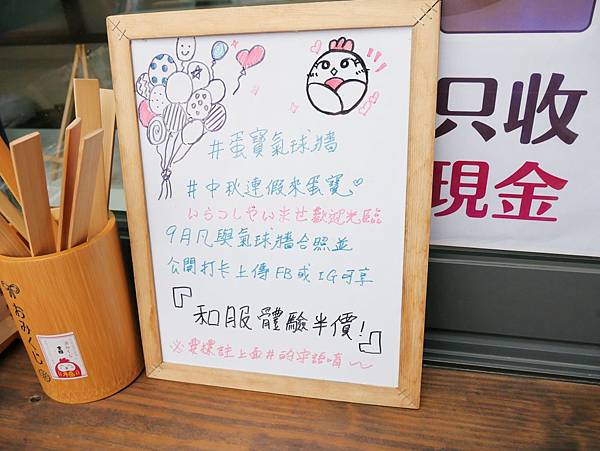 #蛋寶氣球牆
#中秋連假來蛋寶♡
いらっしゃいませ歡迎光臨
9月凡與氣球牆合照並
公開打卡上傳FB或IG可享
『和服體驗半價!』
※要標註上面#的字語唷~
只收
現金
おみくじ